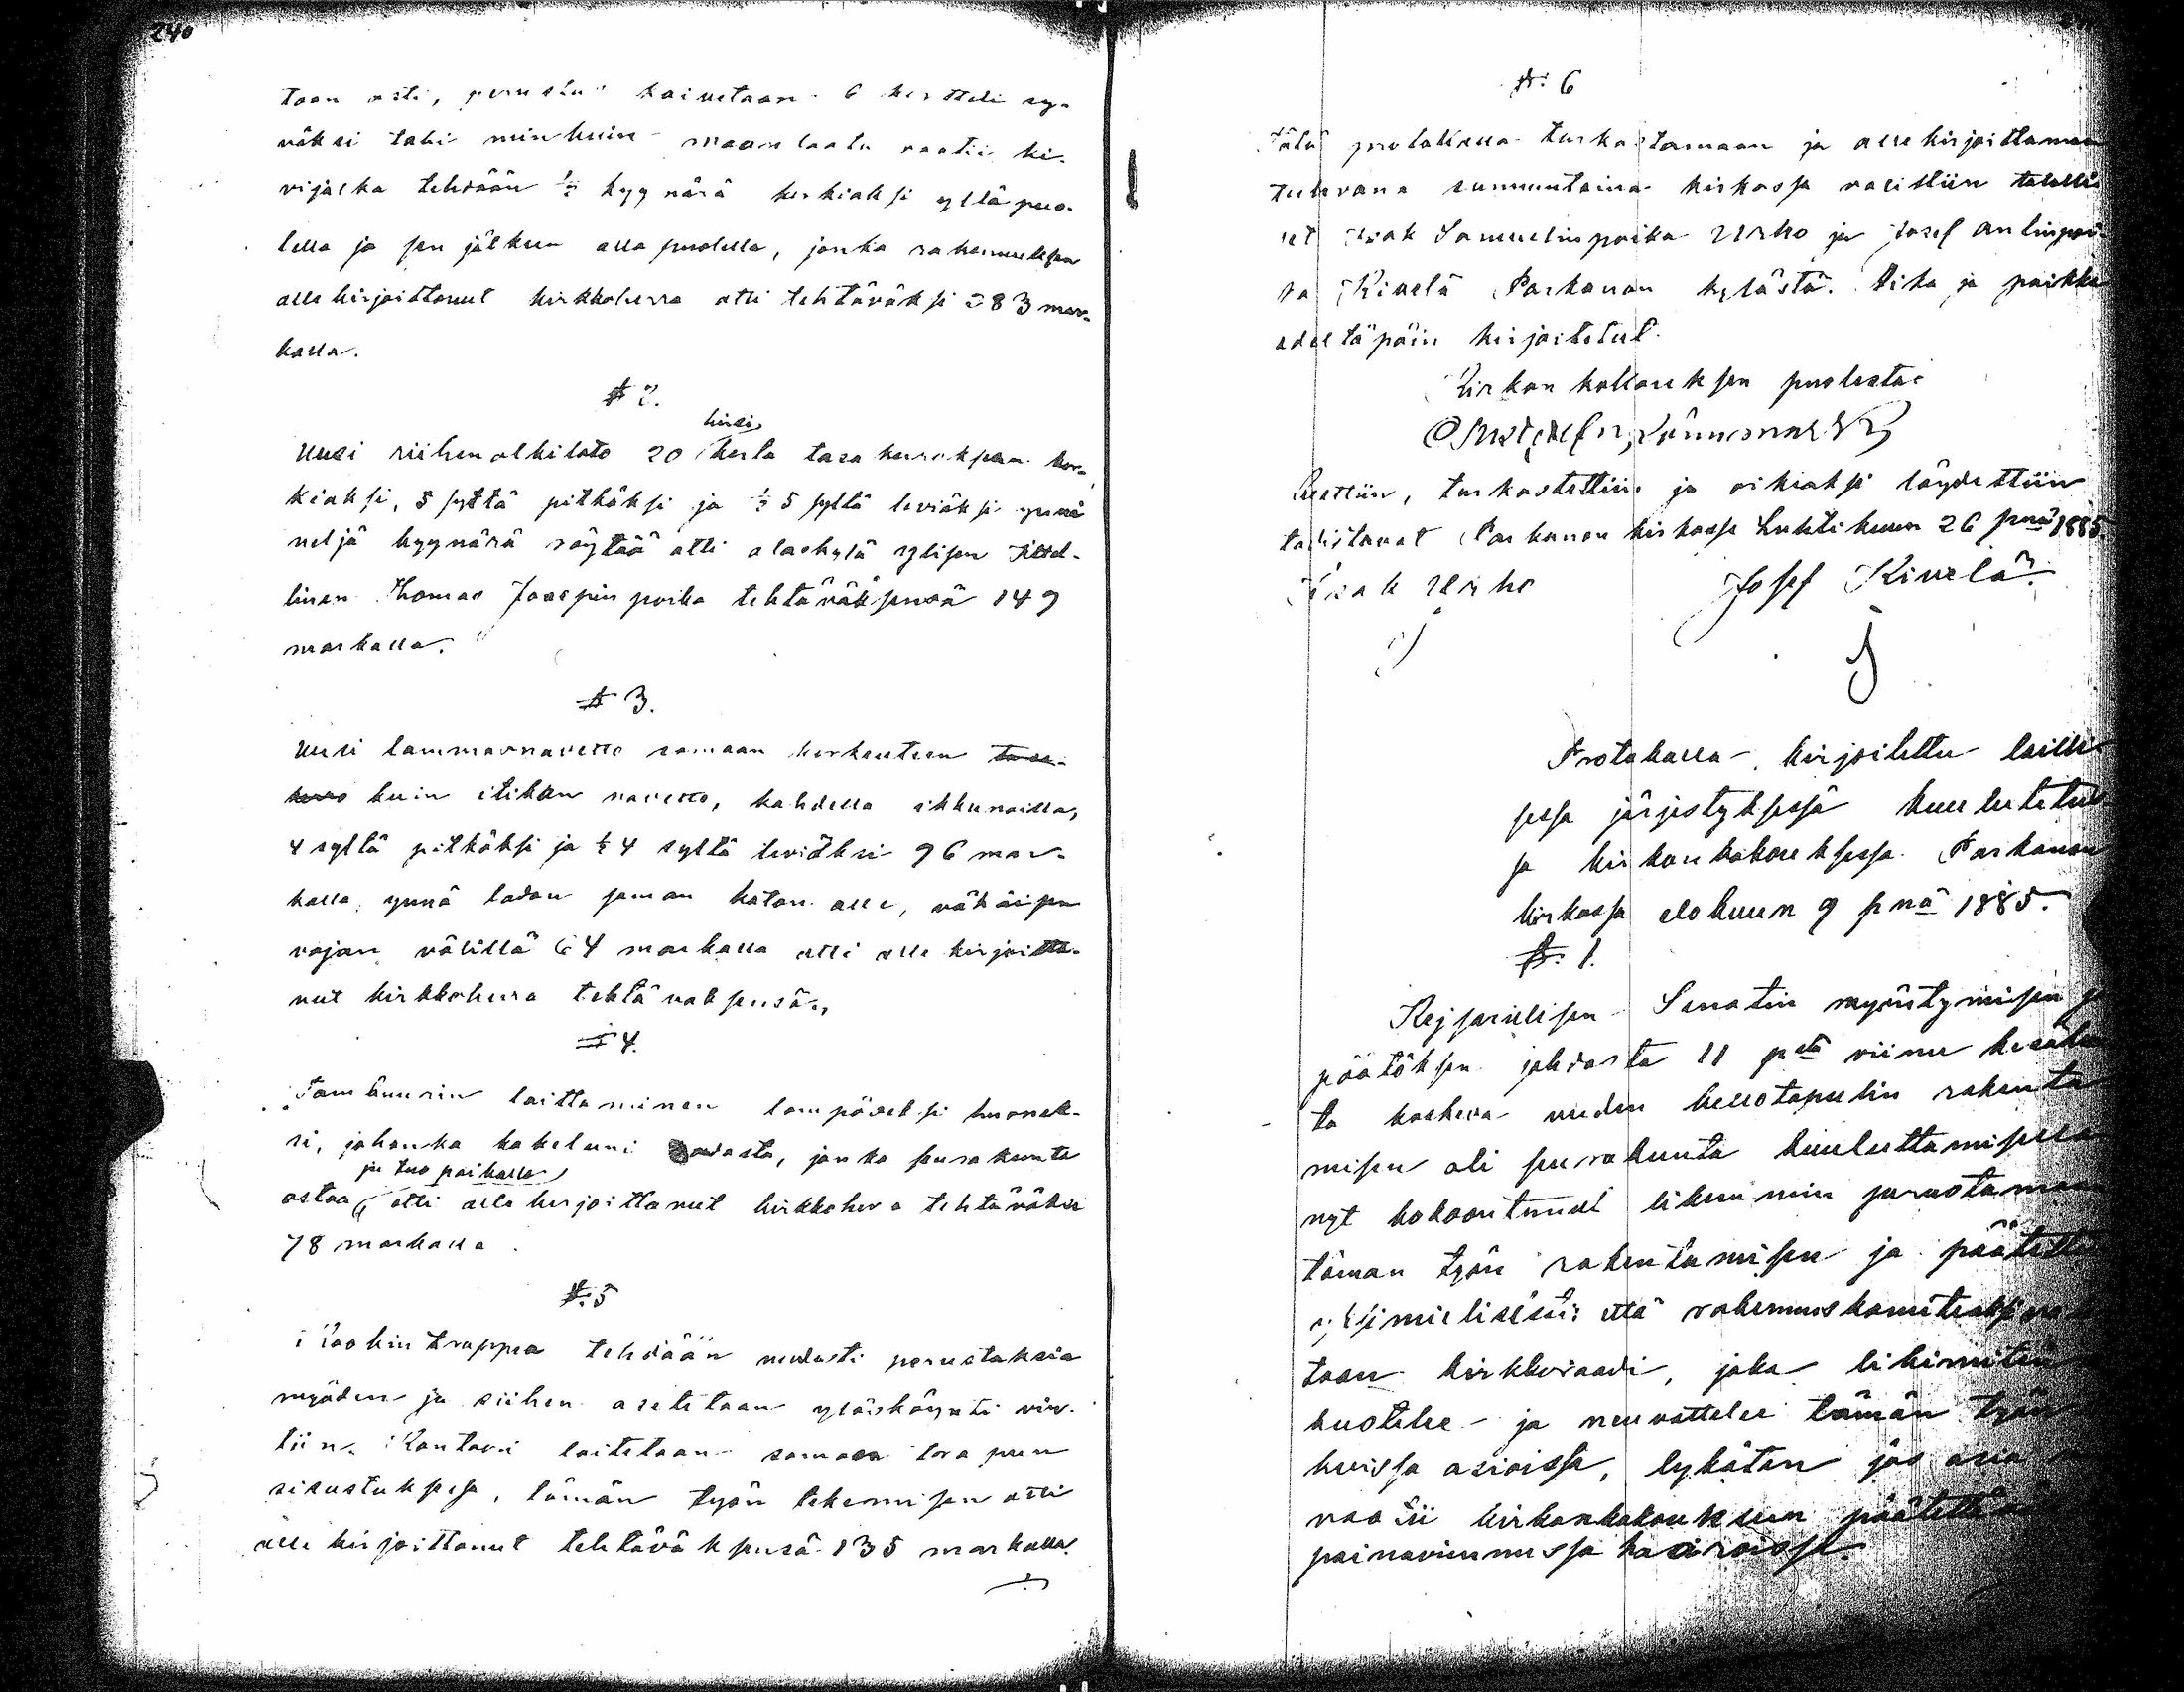 240
taan asti, perustus kaivetaan 6 kortteli sy-
väksi tahi minkuin maan laatu vaatii ki-
vijalka tehdään ½ kyynärä korkiaksi ylläpuo-
lella ja sen jälkeen alla puolella, jonka rakennuksen
allekirjoittanut kirkkoherra otti tehtäväksi 283 mar-
kalla.
§ 2.
hirsi
Uusi riihen olkilato 20 kerta tasakerroksen kor-
kiaksi, 5 syltä pitkäksi ja ½ 5 syltä leviäksi ynnä
neljä kyynärä röytää otti alaskylä
linen Thomas Josepinpoika tehtäväksensä 149
markalla.
§ 3.
Uusi lammasnavetto samaan korkeuteen tasa-
kerro kuin itikan navetto, kahdella ikkunoilla,
4 syltä pitkäksi ja ½ 4 syltä leviäksi 96 mar-
kalla, ynnä ladon saman katon alle, vähäisen
vajan välillä 64 markalla otti alle kirjoitta-
nut kirkkoherra tehtäväksensä.
§ 4.
Tambuurin laittaminen lämpöseksi huonek-
si, johonka kakeluni raudasta, jonka seurakunta
ja tuo paikalle
ostaa, otti allekirjoittanut kirkkoherra tehtäväksi
78 markalla.
§ 5
trappea tehdään uudesti perustuksia
myöden ja siihen asetetaan yläskäynti
tiin. Kontori laitetaan samaan tapaan
sisustuksesa, tämän työn tekemisen otti
alle kirjoittanut tehtäväksensä 135 markalla.
§ 6
Tätä protokolla tarkastamaan ja allekirjoittamaan
tulevana sunnuntaina kirkossa valittiin talolli-
set Isak Samuelinpoika Urho ja Josef Antinpoi-
ka Kivelä Parkanon kylästä. Aika ja paikka
edeltäpäin kirjoitetut.
Kirkon kokouksen puolesta:
Luettiin, tarkastettiin ja oikiaksi löydettiin
todistavat Parkanon kirkossa Huhtikuun 26 pnä 1885.
Isak Urho Josef Kivelä
Protokolla, kirjoitettu lailli-
sessa järjestyksessä kuulutetus-
sa kirkonkokouksessa Parkanon
kirkossa elokuun 9 pnä 1885.
§ 1.
Keisarillisen Senatin myöntymisen ja
päätöksen johdosta 11 pstä viime kesäkuu-
ta koskeva uuden kellotapulin rakenta-
misen oli seurakunta kuuluttamisella
nyt kokoontunut likemmin
tämän työn rakentamisen ja päätettiin
yksimielisesti: että rakennuskomiteaksi
taan kirkkoraadi, joka likimmiten
huolelee ja neuvottelee tämän työn
kuissa asioissa, lykäten jos asia
vaatii kirkonkokouksen päätettäväksi
painavimmissa